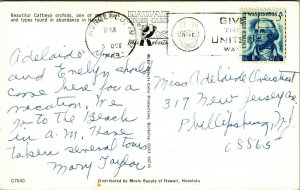 Beautiful Cattleya orchids, one of
and types found in abundance in
PM
OCT
GIVE
THE
UNITED
WAY
Adelaide you
and Evelyn should
come here for a
vacation. We
go to the Beach
in A.M. Have
taken several tours
Mary Taylor
Miss Adelaide
317 New Jersey Ave
Phillipsburg NJ
08865
C7640
Distributed by Movie Supply of Hawaii, Honolulu